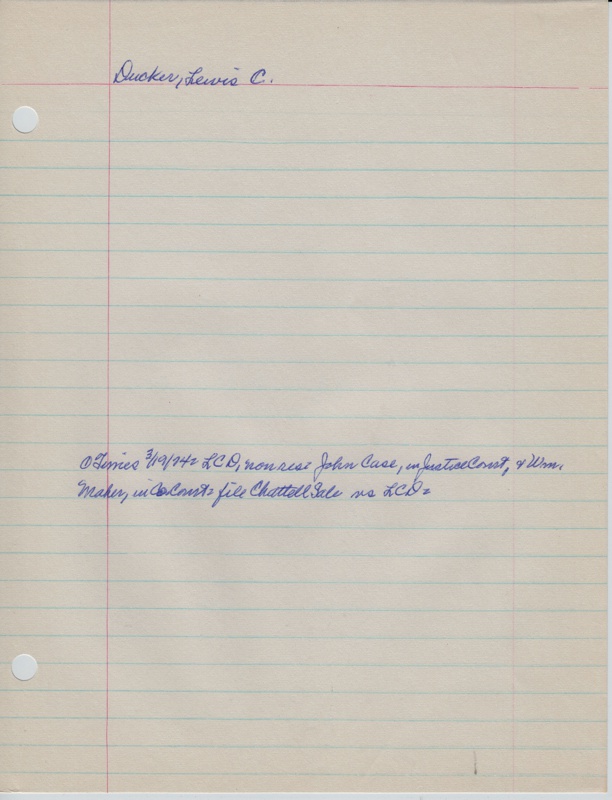 Ducker, Lewis C.
① Times 3/19/74= LCD, nonres= John Case, in Justice Court, & Wm.
Maher, in Co Court= file Chattell Sale vs LCD=